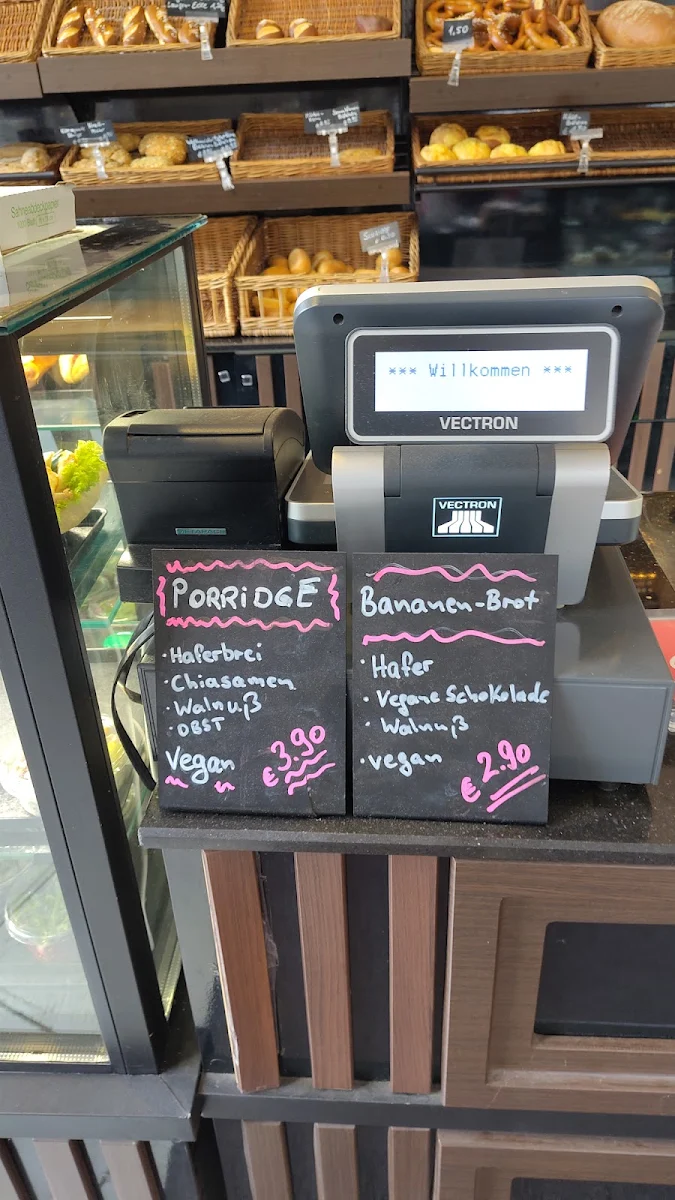 1,50
Sahneabdeckpapier
*** Willkommen ***
VECTRON
VECTRON
PORRiDGE
· Haferbrei
· Chiasamen
· Walnuß
· OBST
Vegan
€ 3.90
Bananen-Brot
· Hafer
· Vegane Schokolade
· Walnuß
· vegan
€ 2.90